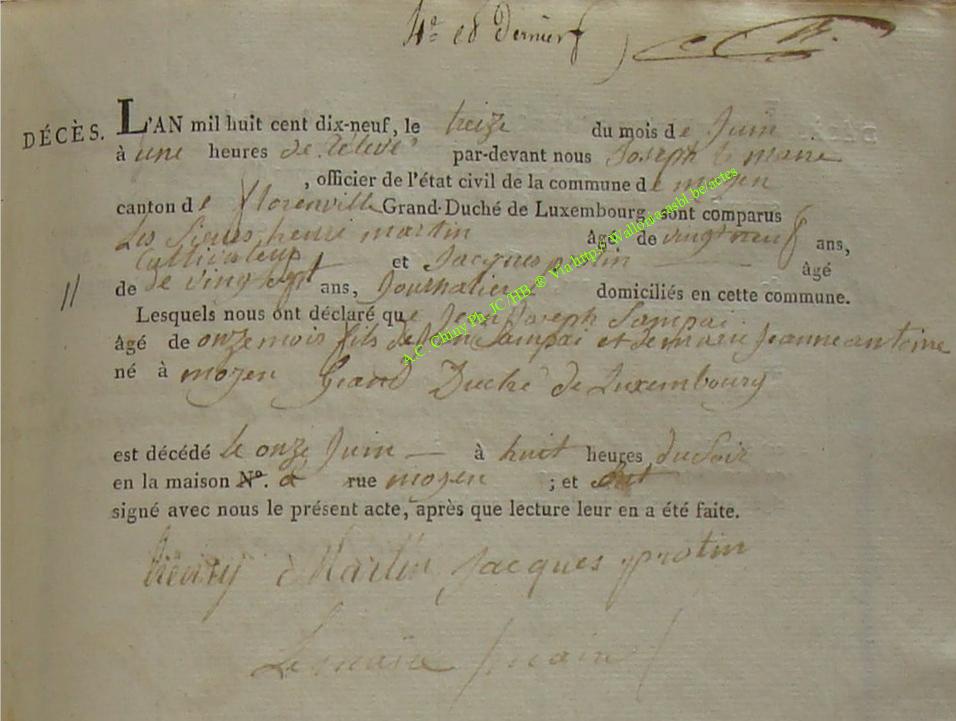 4e et dernier
DÉCÈS. L'AN mil huit cent dix-neuf, le treize du mois de Juin
à une heures de Relevé par-devant nous Joseph le maire
, officier de l'état civil de la commune de moyen
canton de florenville Grand-Duché de Luxembourg, sont comparus
Les Sieurs henri martin âgé de vingt neuf ans,
Cultivateur et Jacques protin âgé
de vingt sept ans, Journalier domiciliés en cette commune.
Lesquels nous ont déclaré que Jean Joseph Sampai
âgé de onze mois fils de Sampai et de marie Jeanne antoine
né à moyen Grand Duché de Luxembourg
est décédé le onze Juin à huit heures du Soir
en la maison No. à rue moyen ; et ont
signé avec nous le présent acte, après que lecture leur en a été faite.
henry Martin Jacques protin
Lemaire maire
A.C. Chiny Ph. JC /HB ® Via http://Wallonia-asbl.be/actes